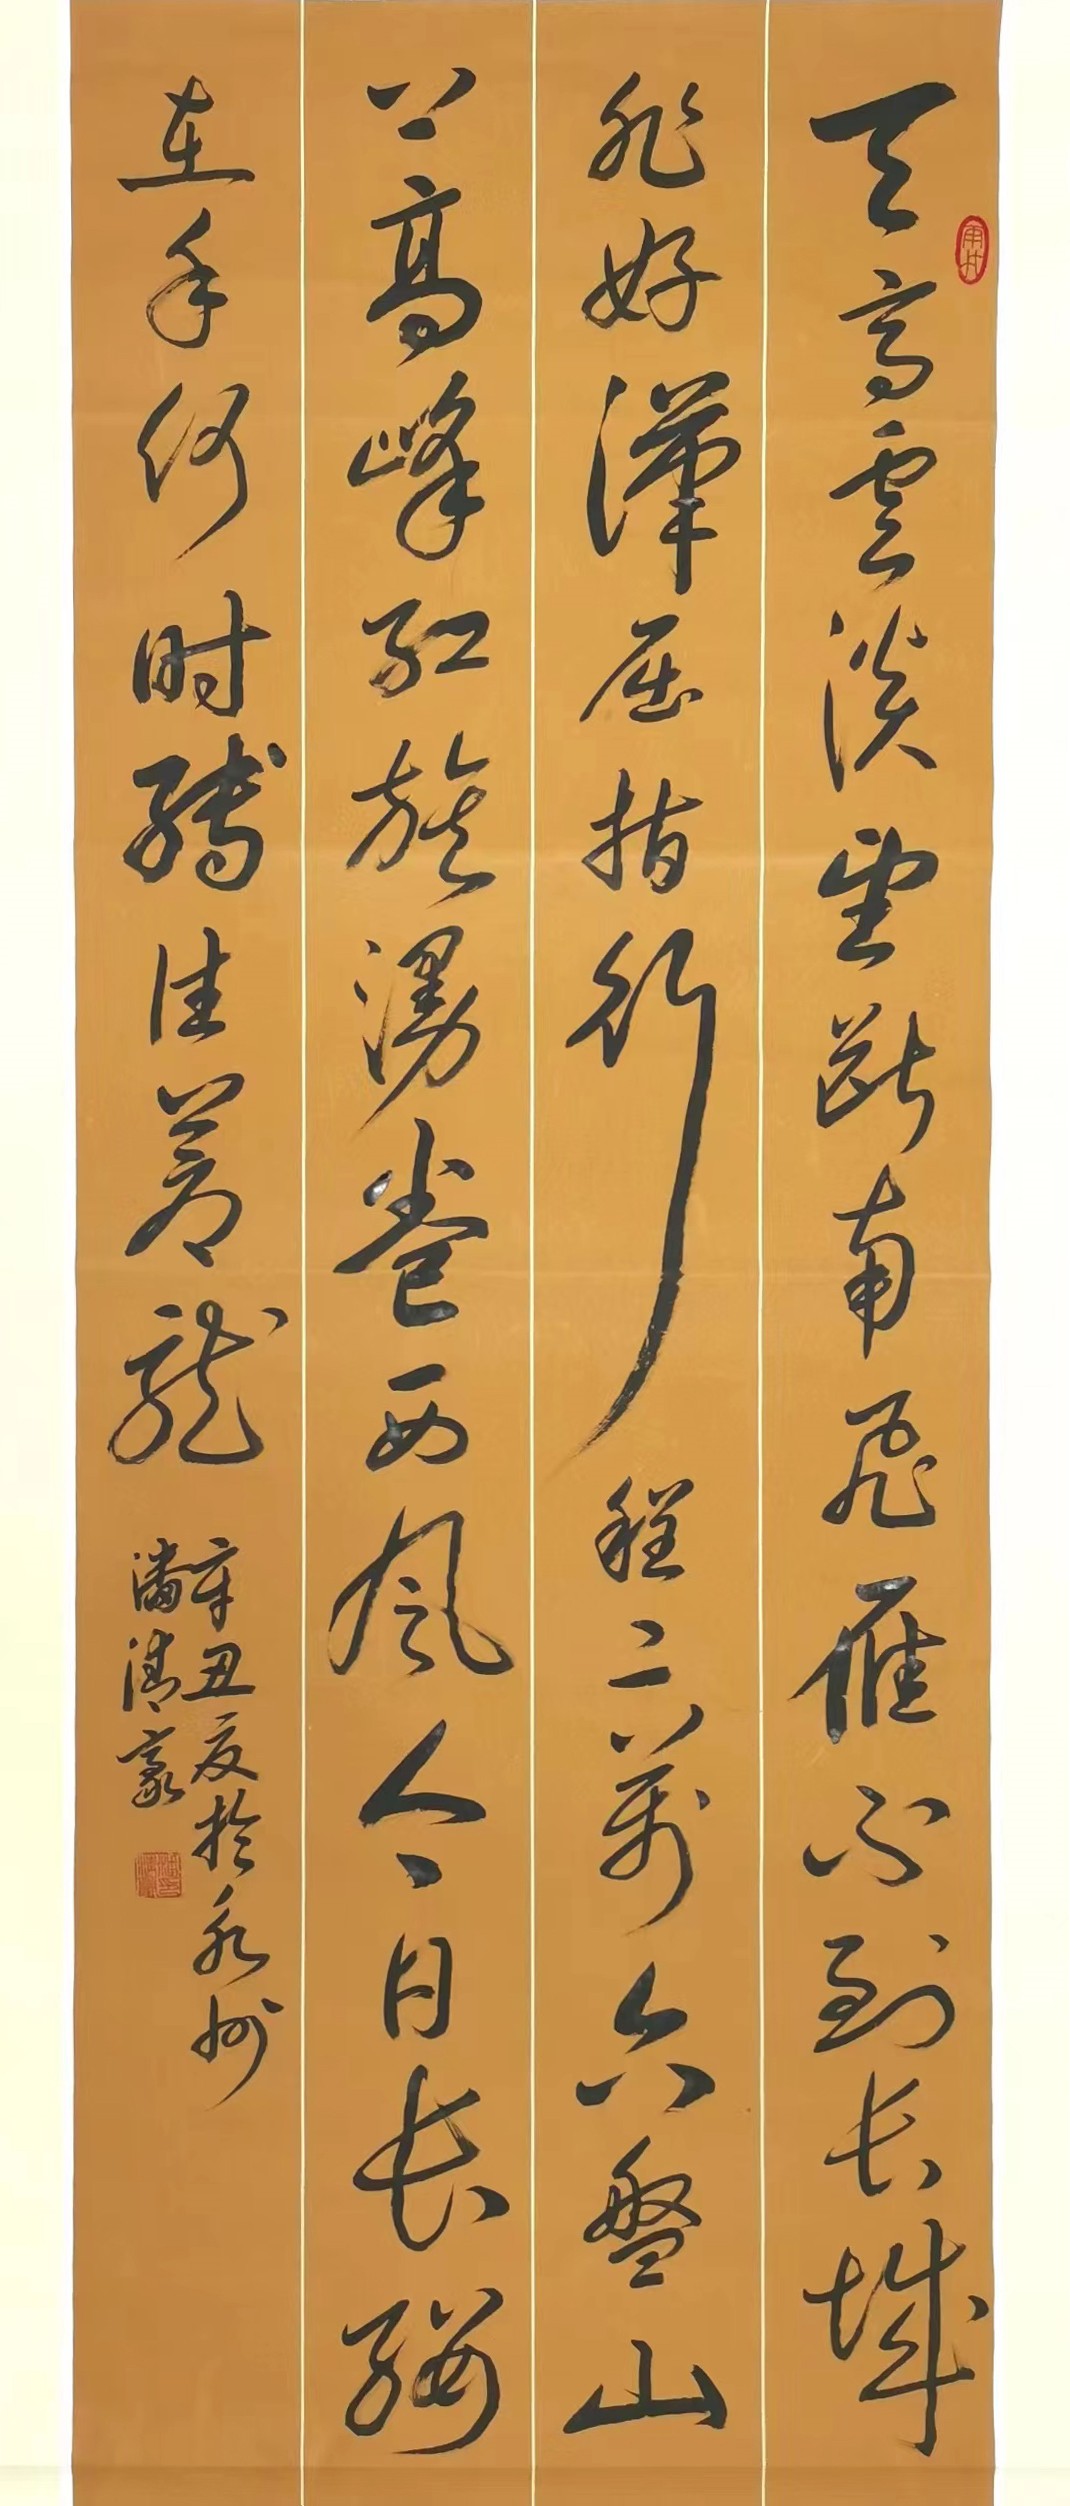 天高雲淡望断南飛雁不到长城
非好漢屈指行程二萬六盤山
上高峰红旗漫卷西風今日长缨
在手何时缚住蒼龍
辛丑夏於永州
潘清豪